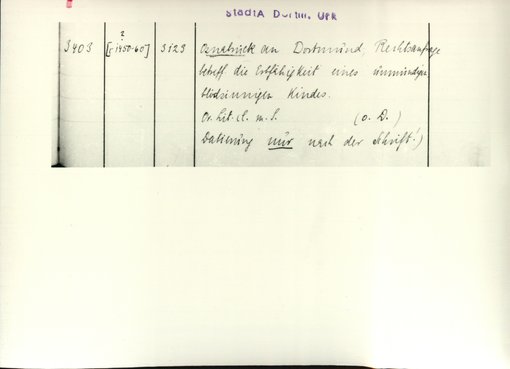 StadtA Dortm. Urk
?
3403 [c 1450-60] 3123 Osnabrück an Dortmund Rechtsanfrage
betreff. die Erbfähigkeit eines unmündigen
blödsinnigen Kindes.
Or. Lit. cl. m. S. (o. D.)
Datierung nur nach der Schrift!)